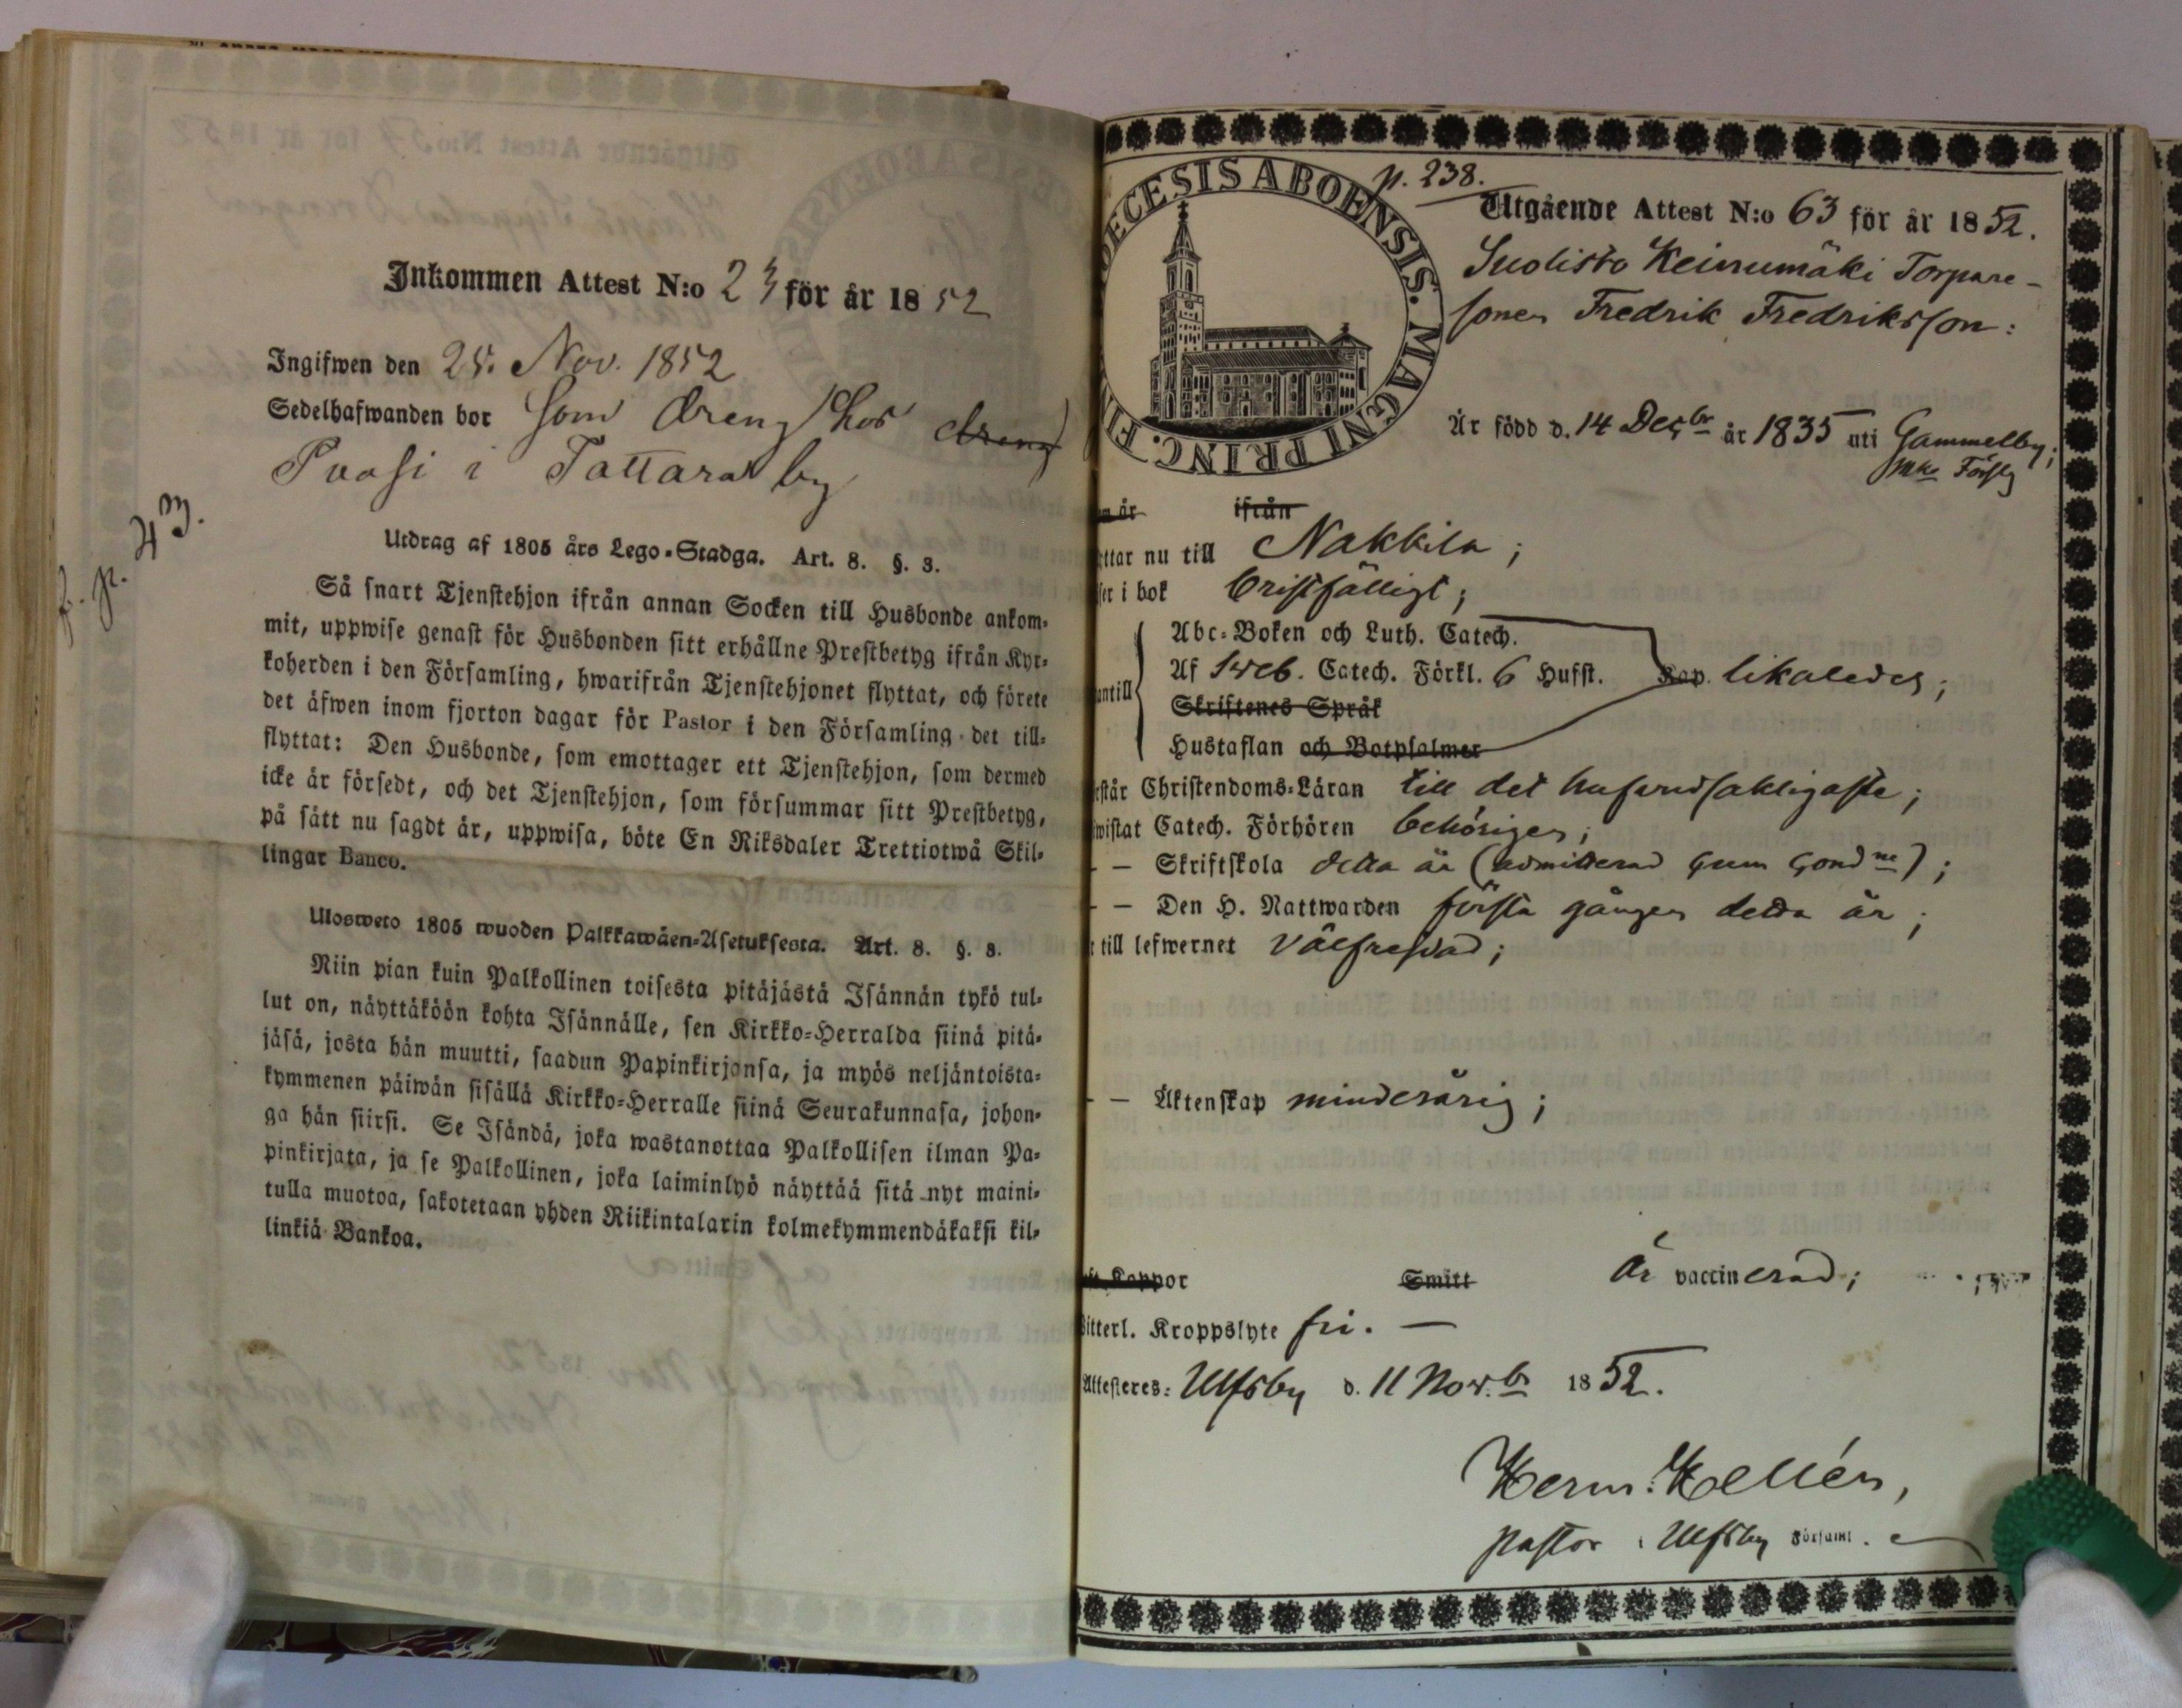 Inkommen Attest N:o 23 för år 1852
Ingifwen den 25. Nov. 1852
Sedelhafwanden bor som dreng hos dreng
i Tattara by
f. p. 43.
Utdrag af 1805 års Lego-Stadga. Art. 8. §. 3.
Så snart Tjenstehjon ifrån annan Socken till Husbonde ankom-
mit, uppwise genast för Husbonden sitt erhållne Prestbetyg ifrån Kyr-
koherden i den Församling, hwarifrån Tjenstehjonet flyttat, och förete
det äfwen inom fjorton dagar för Pastor i den Församling det till-
flyttat: Den Husbonde, som emottager ett Tjenstehjon, som dermed
icke är försedt, och det Tjenstehjon, som försummar sitt Prestbetyg,
på sätt nu sagdt är, uppwisa, böte En Riksdaler Trettiotwå Skil-
lingar Banco.
Ulosweto 1805 wuoden Palkkawäen-Asetuksesta. Art. 8. §. 3.
Niin pian kuin Palkollinen toisesta pitäjästä Isännän tykö tul-
lut on, näyttäköön kohta Isännälle, sen Kirkko-Herralda siinä pitä-
jäsä, josta hän muutti, saadun Papinkirjansa, ja myös neljäntoista-
kymmenen päiwän sisällä Kirkko-Herralle siinä Seurakunnasa, johon-
ga hän siirsi. Se Isändä, joka wastanottaa Palkollisen ilman Pa-
pinkirjata, ja se Palkollinen, joka laiminlyö näyttää sitä nyt maini-
tulla muotoa, sakotetaan yhden Riikintalarin kolmekymmendäkaksi kil-
linkiä Bankoa.
p. 238.
DECESIS ABOENSIS. MAGNI PRINC. FIN
Utgående Attest N:o 63 för år 1852.
Suolisto Keinumäki Torpare-
sonen Fredrik Fredriksson:
Är född d. 14 Decbr år 1835 uti Gammelby;
är ifrån
ttar nu till Nakkila;
ser i bok bristfälligt;
Abc-Boken och Luth. Catech.
Af Sveb. Catech. Förkl. 6 Hufst. Kap. likaledes;
antill
Skriftenes Språk
Hustaflan och Botpsalmer
står Christendoms-Läran till det hufvudsakligaste;
wistat Catech. Förhören behörigen;
— Skriftskola detta år (admitterad cum cond ne);
— Den H. Nattwarden första gången detta år;
till lefwernet välfrejdad;
— Äktenskap minderårig;
Koppor Smitt Är vaccinerad;
itterl. Kroppslyte fri. —
Attesteres: Ulfsby d. 11 Nov.br 1852.
Herm: Hellén,
pastor i Ulfsby Församl.